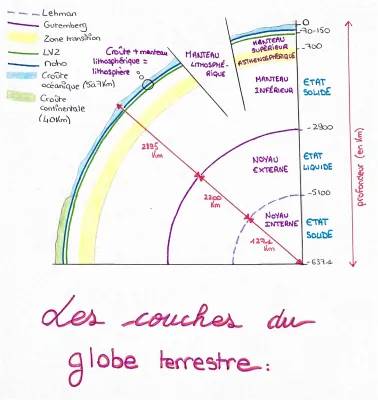 Lehman
Gutemberg
Zone transition
LVZ
Moho
Croûte
océanique (5à7Km)
Croûte
continentale
(40Km)
Croûte + manteau
lithosphérique =
lithosphère
MANTEAU
LITHOSPHÉ-
RIQUE
MANTEAU
SUPÉRIEUR
ASTHÉNOSPHÉRIQUE
MANTEAU
INFÉRIEUR
0
-70-150
-700
ETAT
SOLIDE
-2900
NOYAU
EXTERNE
ETAT
LIQUIDE
-5100
NOYAU
INTERNE
ETAT
SOLIDE
2885
Km
2200
Km
1271
Km
profondeur (en Km)
Les couches du
globe terrestre :